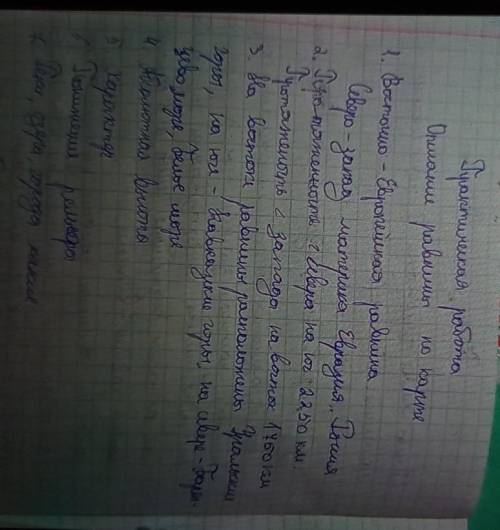 Практическая работа
Описание равнины по карте
1. Восточно-Европейская равнина
Северо-запад материка Евразия, Россия
2. Протяженность с севера на юг 2250 км
Протяженность с запада на восток 1760 км
3. На востоке равнины расположены Уральские
горы, на юге - Кавказские горы, на севере - Барен-
цево море, Белое море
4 Абсолютная высота
5
Понижения рельефа
Реки, озёра